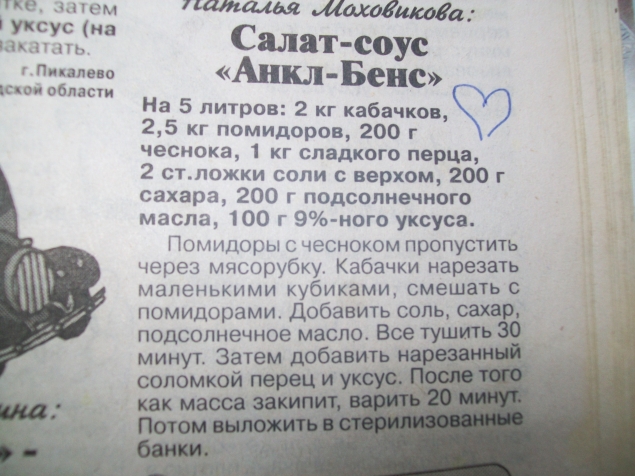 тке, затем
уксус (на
закатать.
г.Пикалево
дской области
Наталья Моховикова:
Салат-соус
«Анкл-Бенс»
На 5 литров: 2 кг кабачков,
2,5 кг помидоров, 200 г
чеснока, 1 кг сладкого перца,
2 ст.ложки соли с верхом, 200 г
сахара, 200 г подсолнечного
масла, 100 г 9%-ного уксуса.
Помидоры с чесноком пропустить
через мясорубку. Кабачки нарезать
маленькими кубиками, смешать с
помидорами. Добавить соль, сахар,
подсолнечное масло. Все тушить 30
минут. Затем добавить нарезанный
соломкой перец и уксус. После того
как масса закипит, варить 20 минут.
Потом выложить в стерилизованные
банки.
ина:
» –